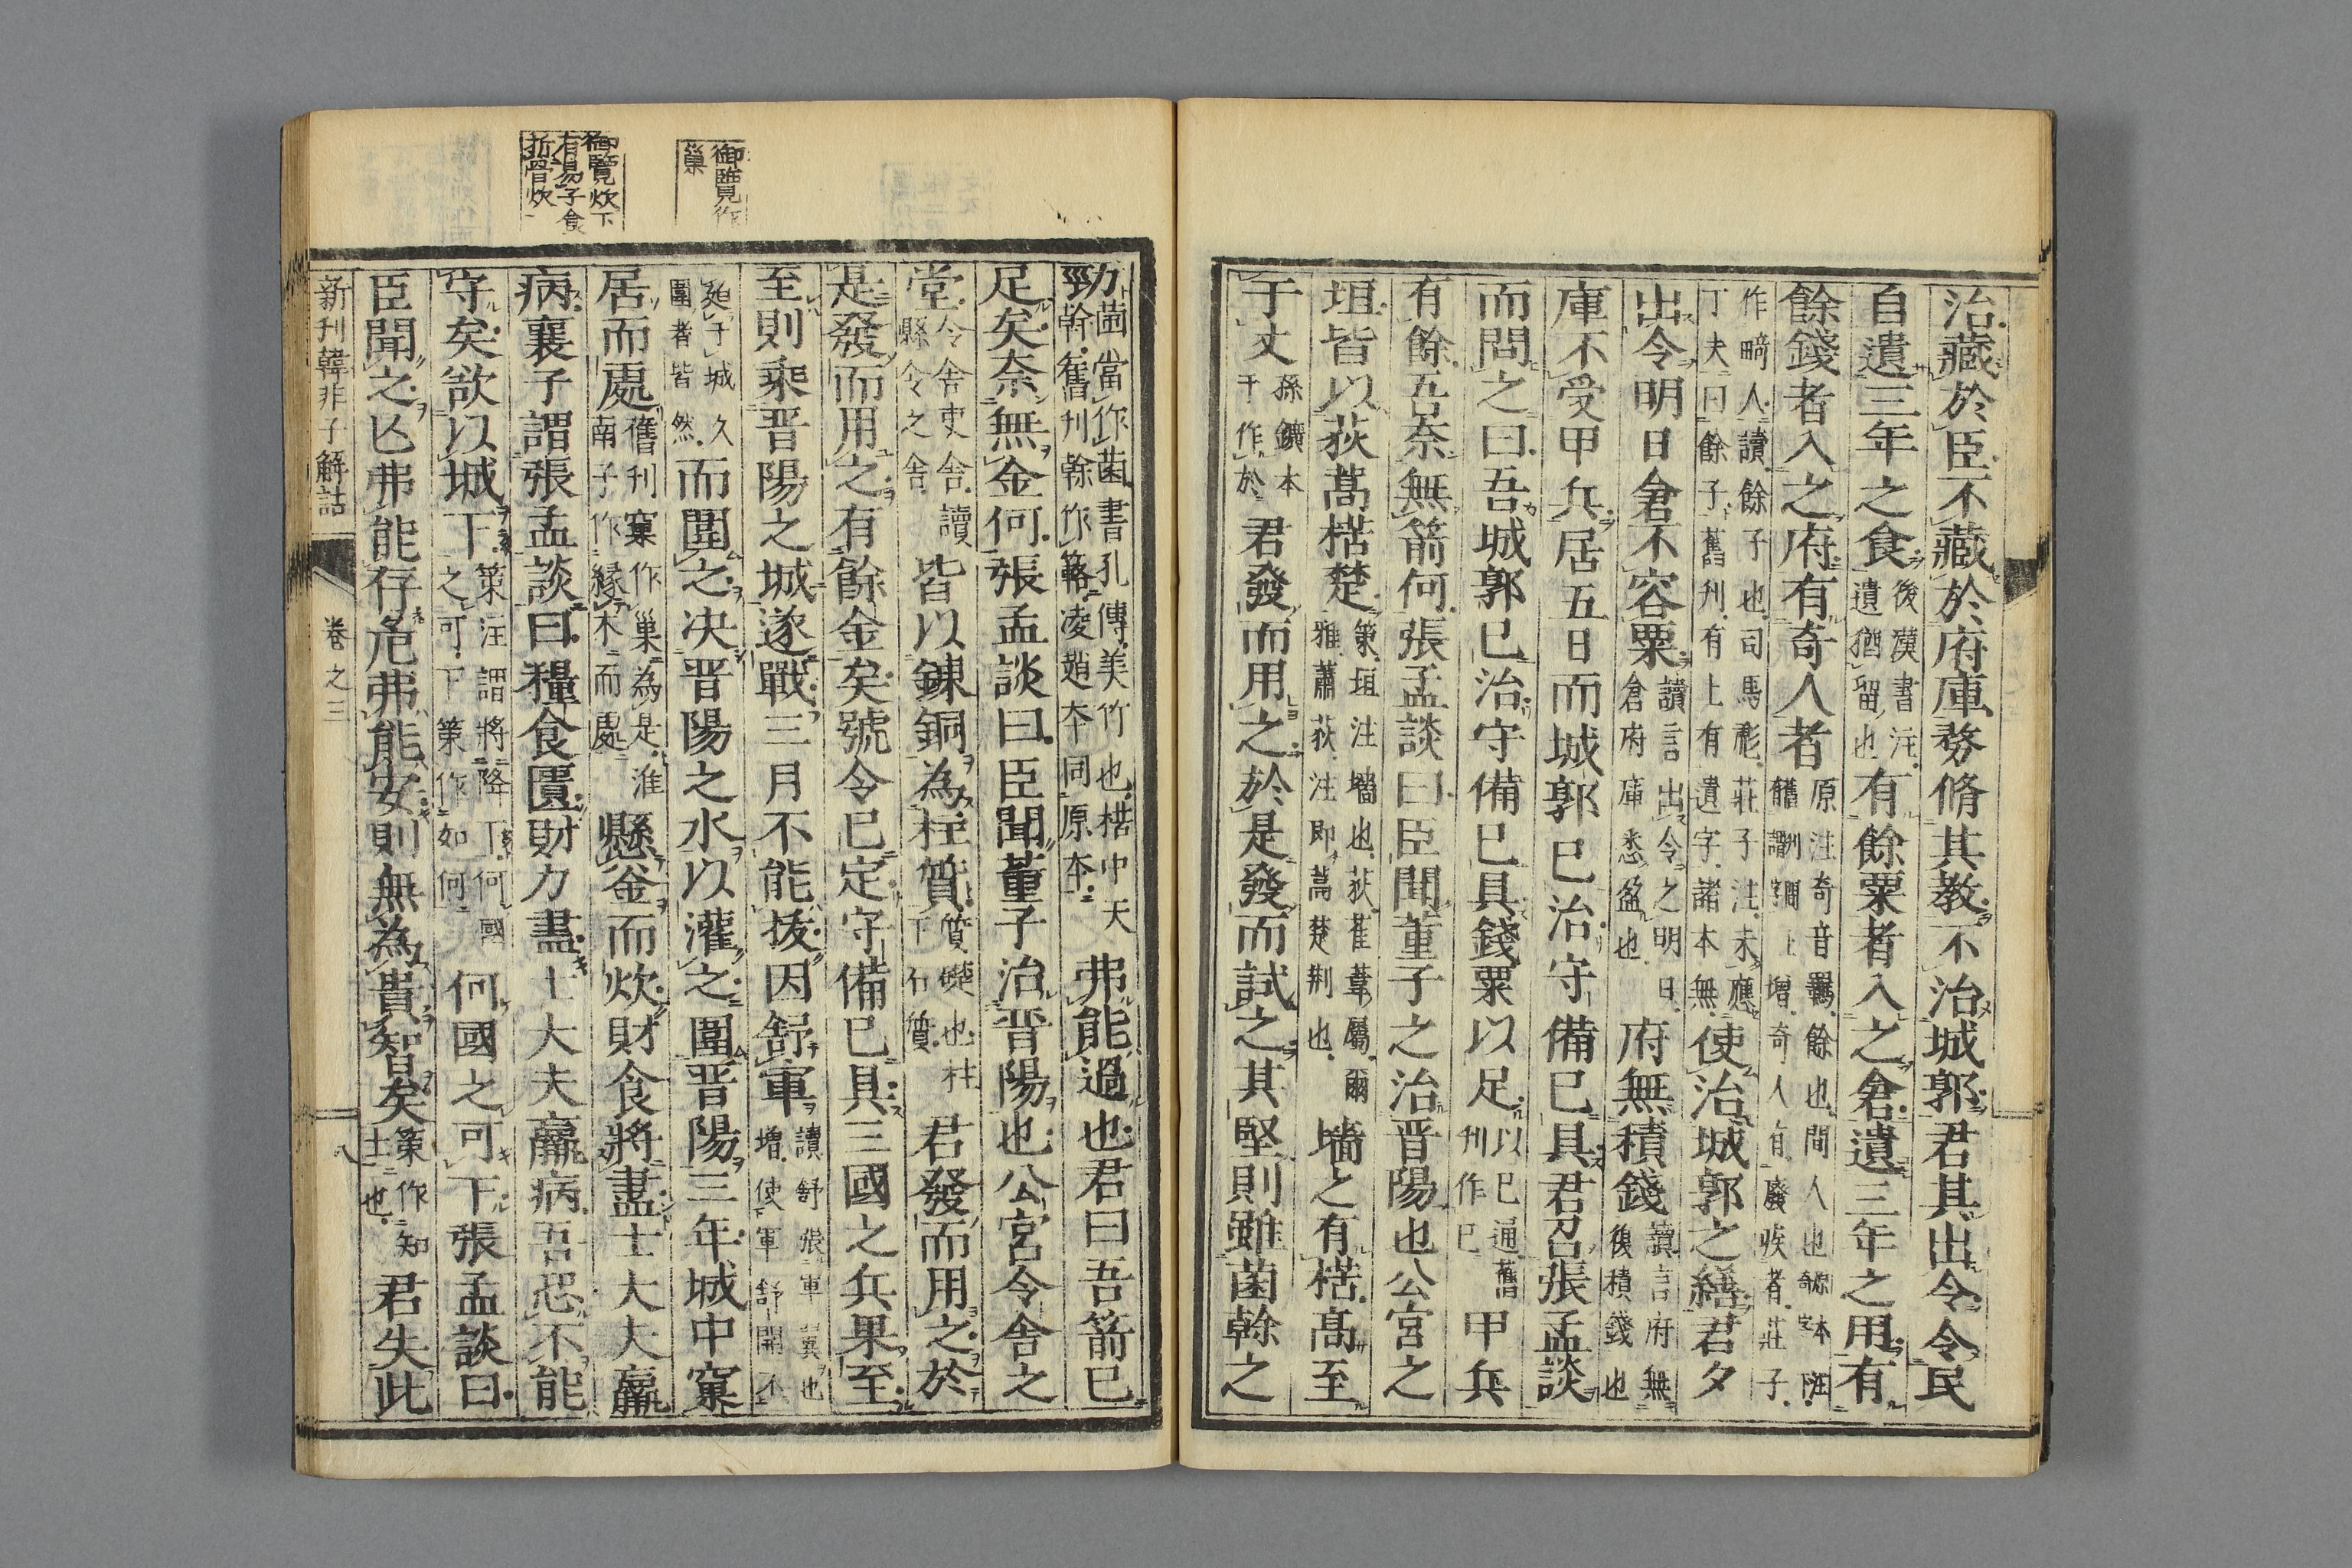 治藏於臣不藏於府庫務脩其教不治城郭君其出令令民
自遺三年之食後漢書注遺猶留也有餘粟者入之倉遺三年之用有
餘錢者入之府有奇人者原注奇音羈餘也間人也
作畸人讀餘子也司馬彪莊子注未應丁夫曰餘子舊刋有上有遺字諸本無使治城郭之繕君夕
出令明日倉不容粟讀言出令之明日倉府庫悉盈也府無積錢讀言府無復積錢也
庫不受甲兵居五日而城郭已治守備已具君召張孟談
而問之曰吾城郭已治守備已具錢粟以足以已通舊刋作已甲兵
有餘吾奈無箭何張孟談曰臣聞董子之治晋陽也公宮之
垣皆以荻蒿楛楚策垣注墻也荻萑葦屬爾雅蕭荻注即蒿楚荆也墻之有楛高至
于丈孫鑛本于作於君發而用之於是發而試之其堅則雖菌幹之
勁菌當作箘書孔傳美竹也楛中矢幹舊刋幹作簵凌趙本同原本弗能過也君曰吾箭已
足矣奈無金何張孟談曰臣聞董子治晋陽也公宮令舍之
堂令舍吏舍讀縣令之舍皆以鍊銅為柱質質礎也柱下石質君發而用之於
是發而用之有餘金矣號令已定守備已具三國之兵果至
至則乘晋陽之城遂戰三月不能拔因舒軍讀舒張軍翼也增使軍舒開不
廹于城久圍者皆然而圍之决晋陽之水以灌之圍晋陽三年城中窠
居而處舊刋窠作巢為是淮南子作縁木而處懸釜而炊財食將盡士大夫羸
病襄子謂張孟談曰糧食匱財力盡士大夫羸病吾恐不能
守矣欲以城下策注謂將降下何國之可下策作如何何國之可下張孟談曰
臣聞之亾弗能存危弗能安則無為貴智矣策作知士也君失此
新刋韓非子解詁 卷之三 八
御覽作巢
御覽炊下有易子食析骨炊